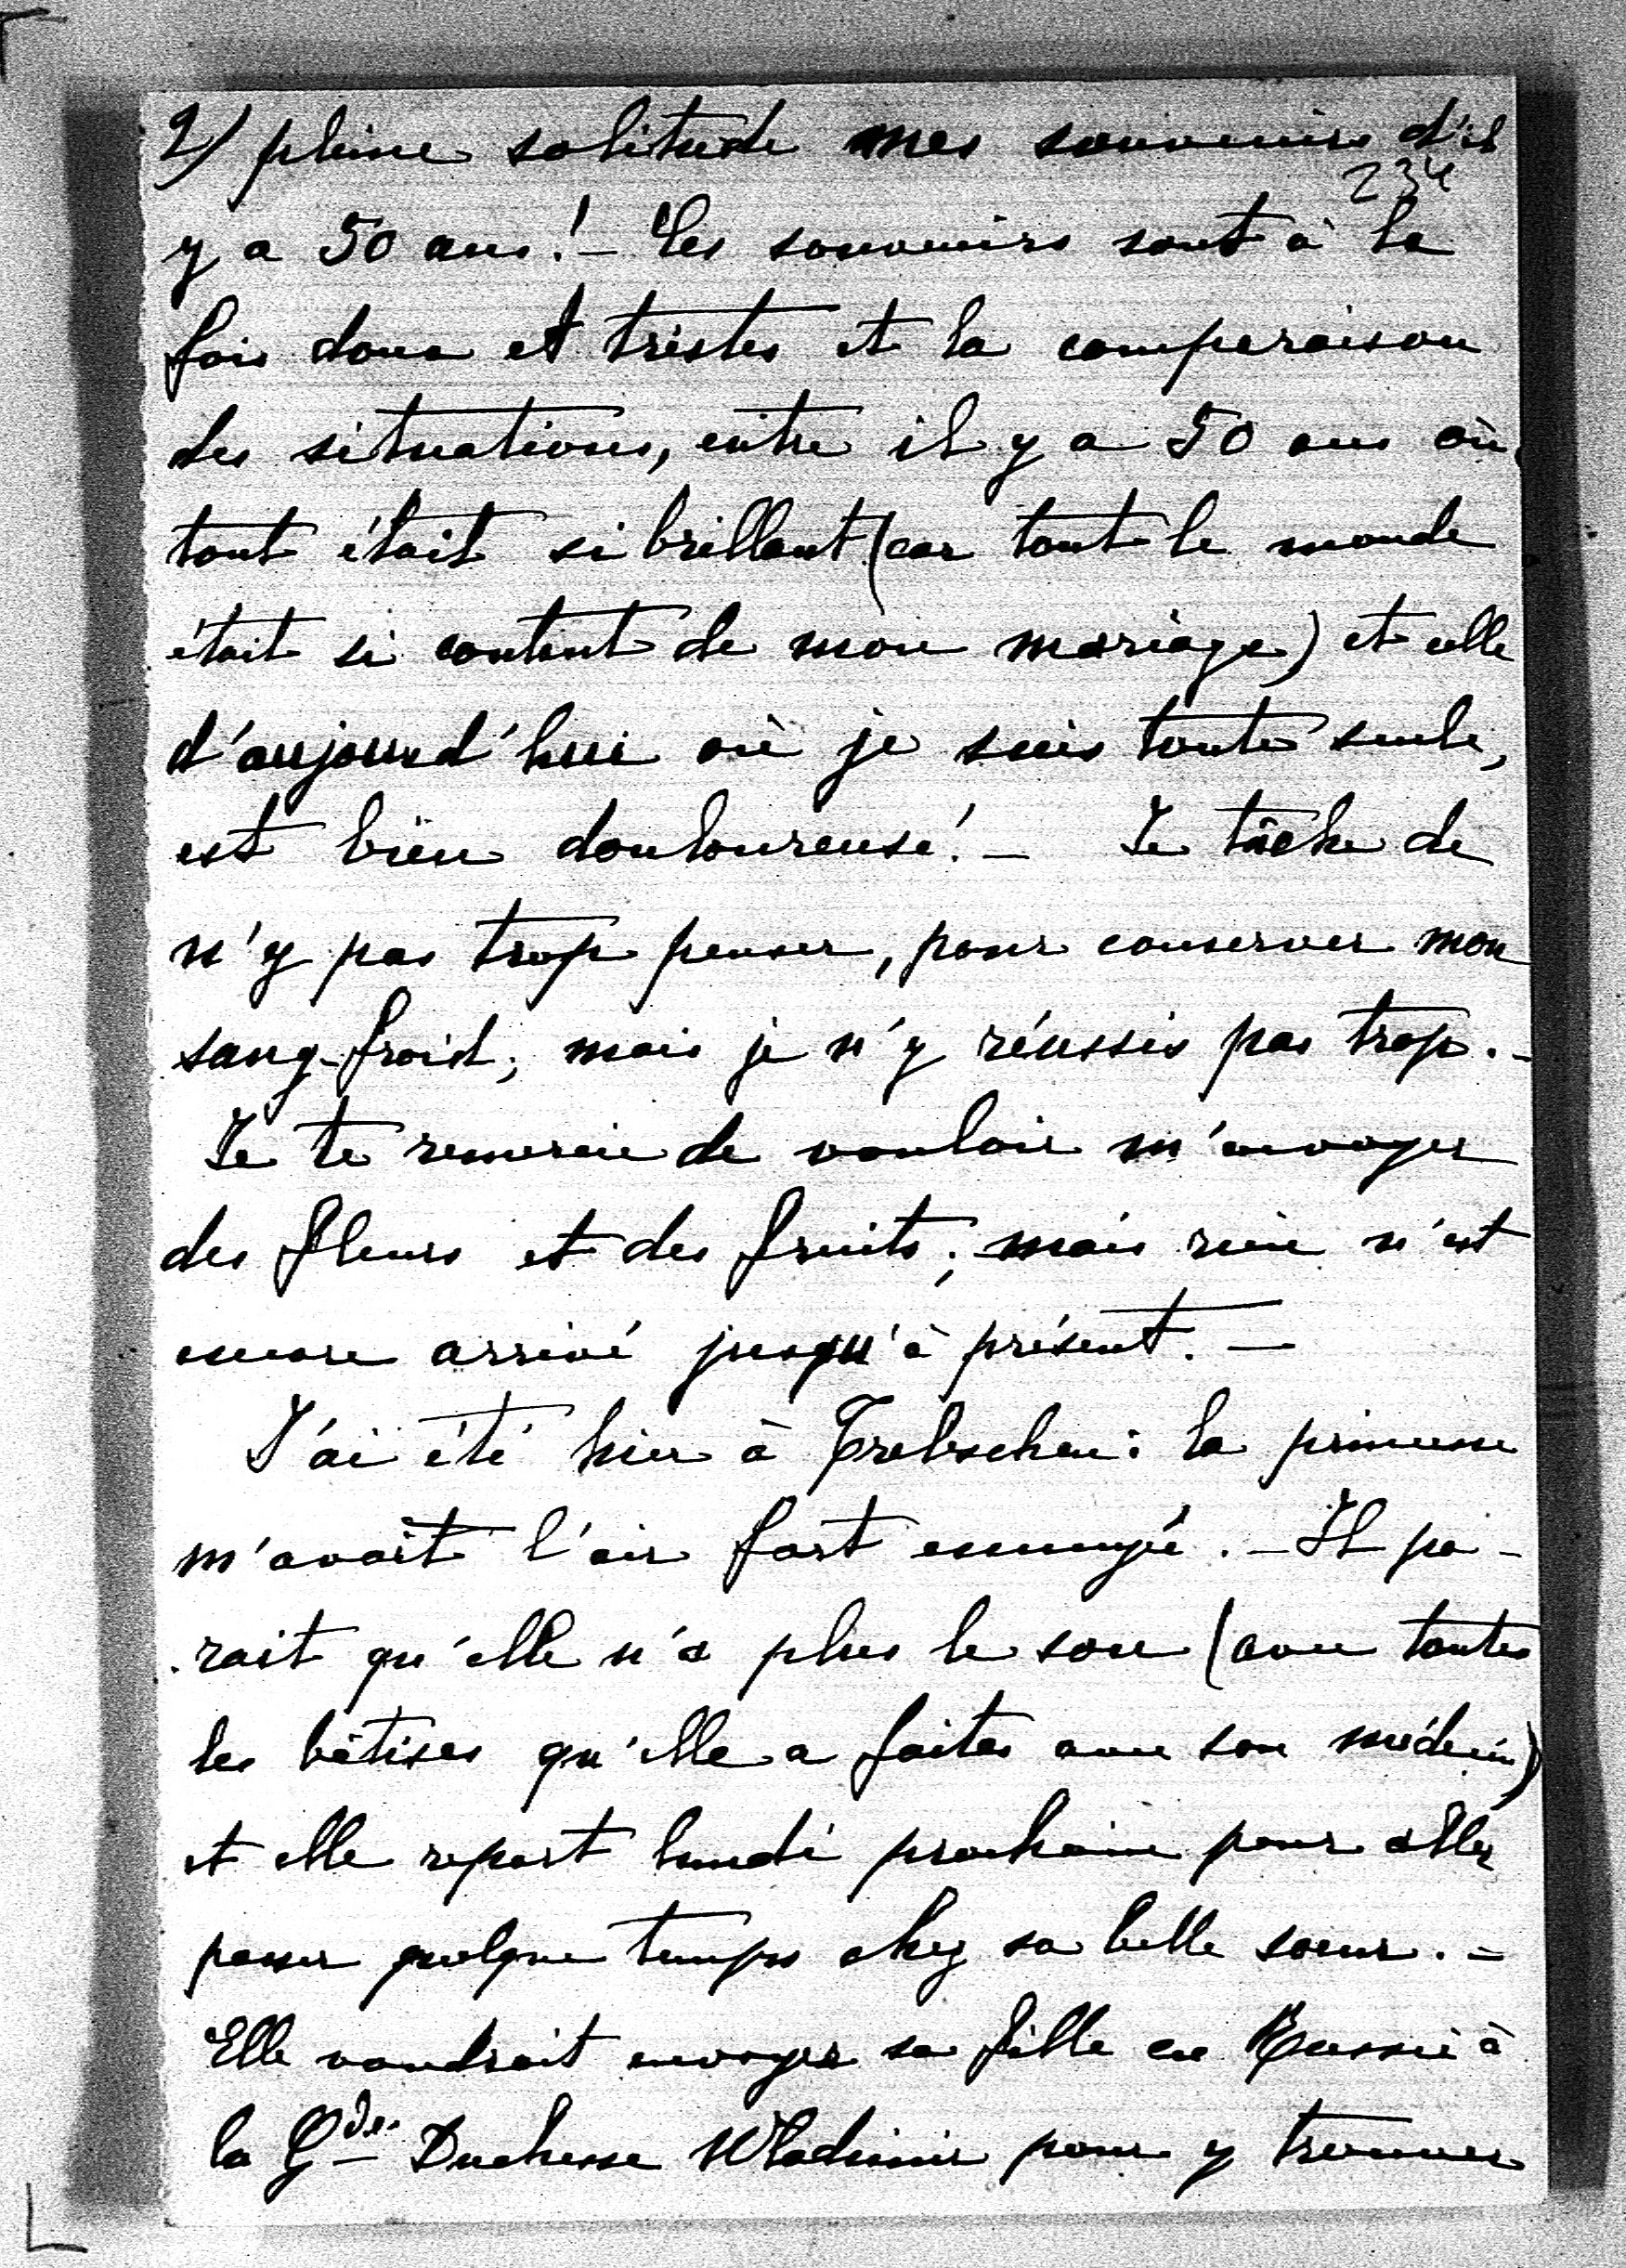 2) pleine solitude mes souvenirs d'il
234
y a 50 ans! – Les souvenirs sont à la
fois doux et tristes et la comparaison
des situations, entre il y a 50 ans où
tout était si brillant (car tout le monde
était si content de mon mariage) et celle
d'aujourd'hui où je suis toute seule,
est bien douloureuse! – Je tâche de
n'y pas trop penser, pour conserver mon
sang-froid; mais je n'y réussis pas trop. –
Je te remercie de vouloir m'envoyer
des fleurs et des fruits; mais rien n'est
encore arrivé jusqu'à présent. –
J'ai été hier à Trebschen: la princesse
m'avait l'air fort ennuyé. – Il pa-
rait qu'elle n'a plus le sou (avec toutes
les bêtises qu'elle a faites avec son médecin)
et elle repart lundi prochain pour aller
passer quelque temps chez sa belle soeur. –
Elle voudrait envoyer sa fille en Russie à
la Gde. Duchesse Wladimir pour y trouver